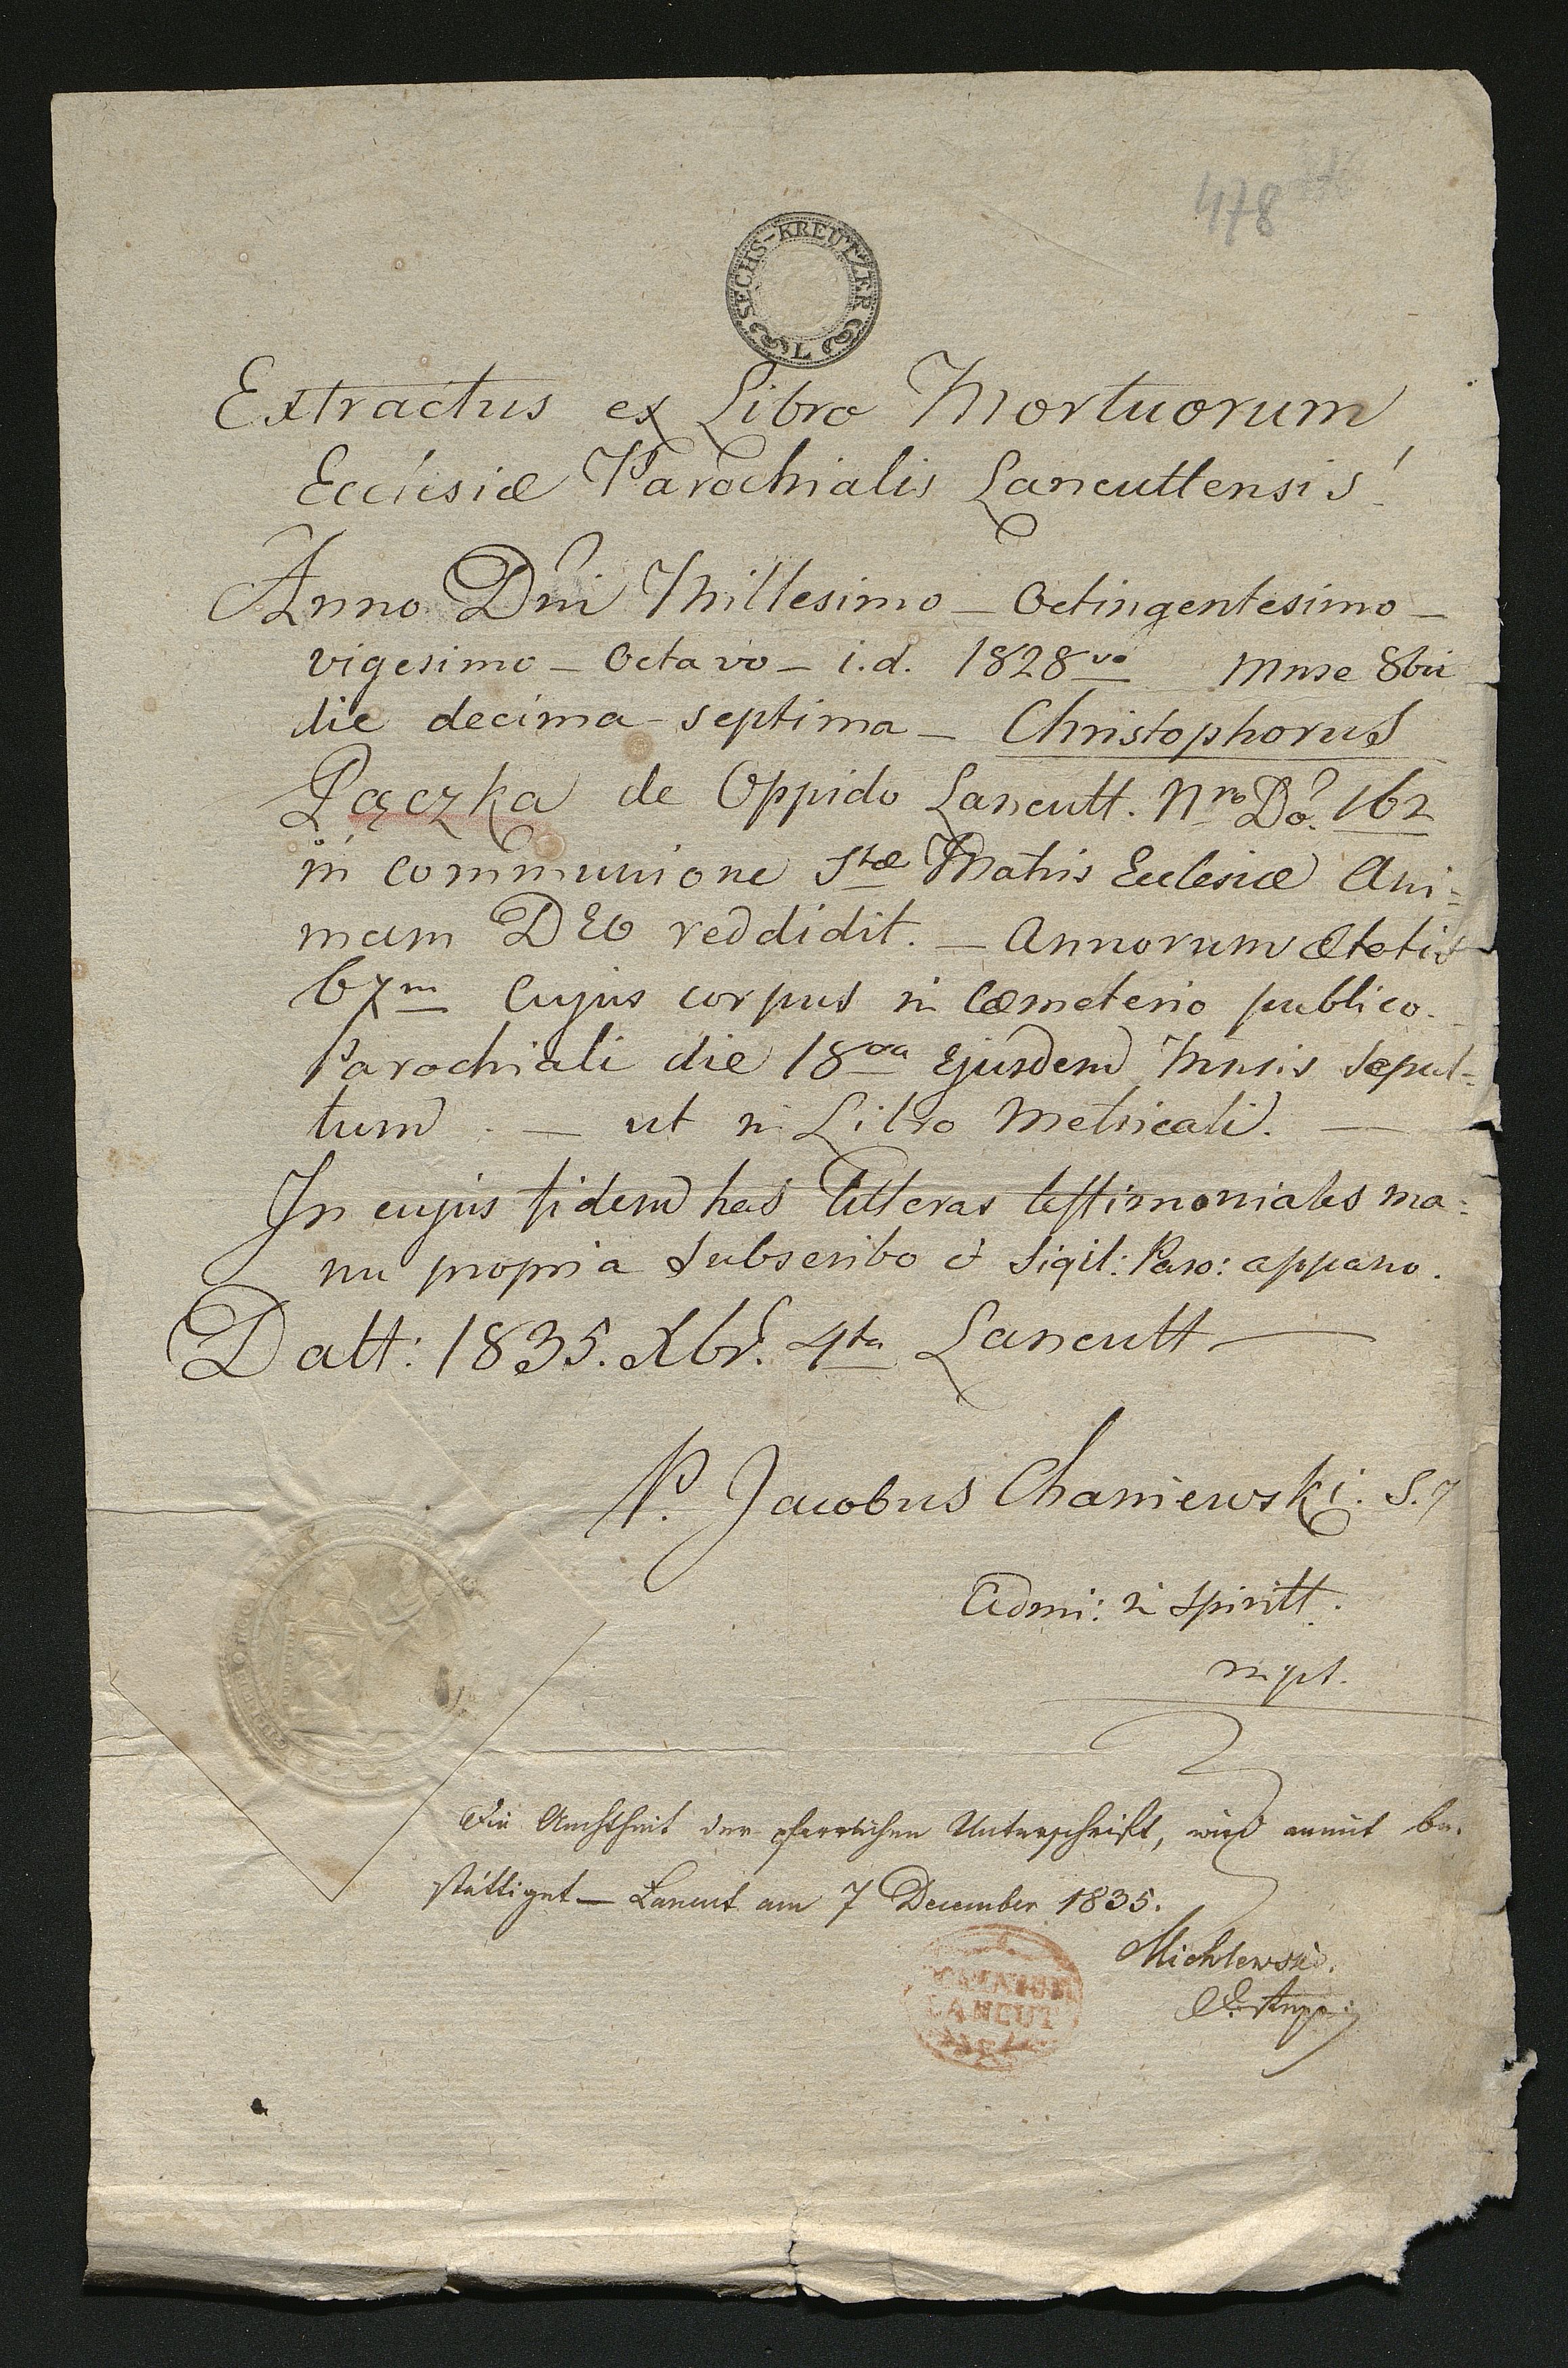 478
SECHS-KREUTZER
L
Extractus ex Libro Mortuorum
Ecclesiæ Parochialis Lancuttensis
Anno Dni Millesimo – Octingentesimo –
vigesimo – Octavo – i.d. 1828vo Mnse 8bri
die decima septima – Christophorus
Pączka de Oppido Lancutt. Nro Do. 162
in communione Stæ Matris Ecclesiæ Ani=
mam DEO reddidit. – Annorum ætatis
67m Cujus corpus in Cœmeterio publico
Parochiali die 18va Ejusdem Mnsis Sepul=
tum – ut in Libro Metricali. –
In cujus fidem has Litteras testimoniales ma=
nu propria Subscribo et Sigil: Paro: appono.
Datt: 1835. Xbr. 4ta Lancutt
P. Jacobus Chaniewski.
Admi: in Spiritt.
mpt.
Die Aechtheit der pfarrlichen Unterschrift, wird anmit be-
stättiget – Lancut am 7 December 1835.
Michlewski.
LANCUT